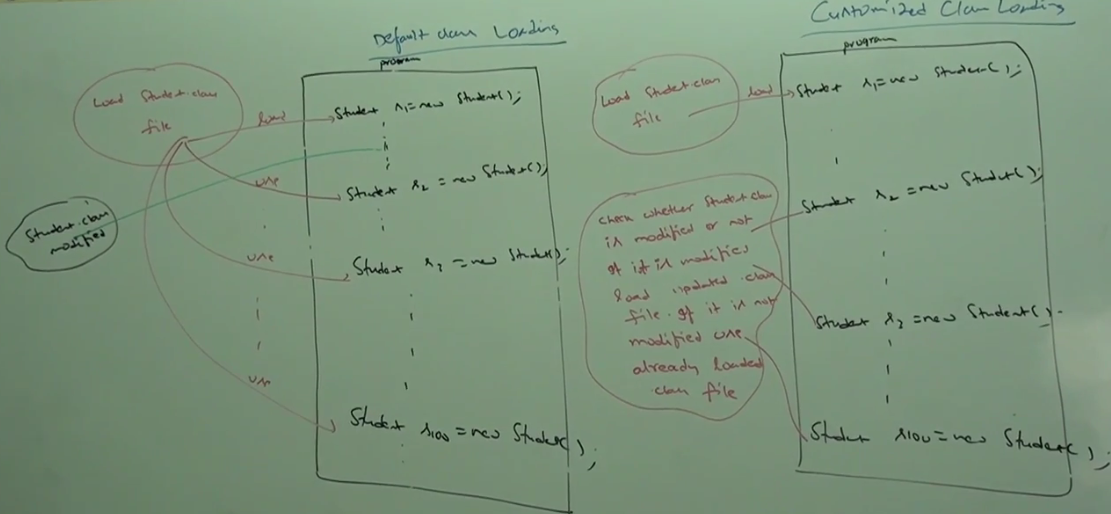 Default class Loading
program
Load Student.class
file
load
Student s1 = new Student();
use
Student s2 = new Student();
Student.class
modified
use
Student s3 = new Student();
use
Student s100 = new Student();
Customized Class Loading
program
Load Student.class
file
load
Student s1 = new Student();
Check whether Student.class
is modified or not
if it is modified
load updated class
file. If it is not
modified use
already loaded
class file
Student s2 = new Student();
Student s3 = new Student();
Student s100 = new Student();